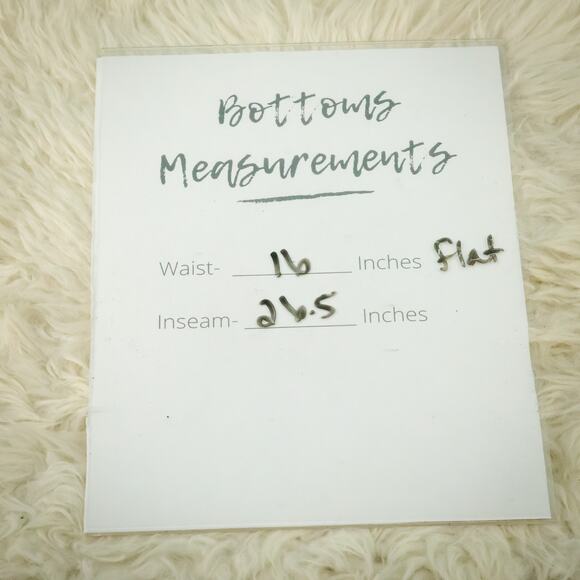 Bottoms
Measurements
Waist- 16 Inches Flat
Inseam- 26.5 Inches